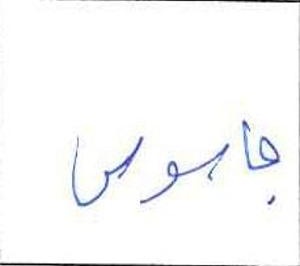 جاسوس